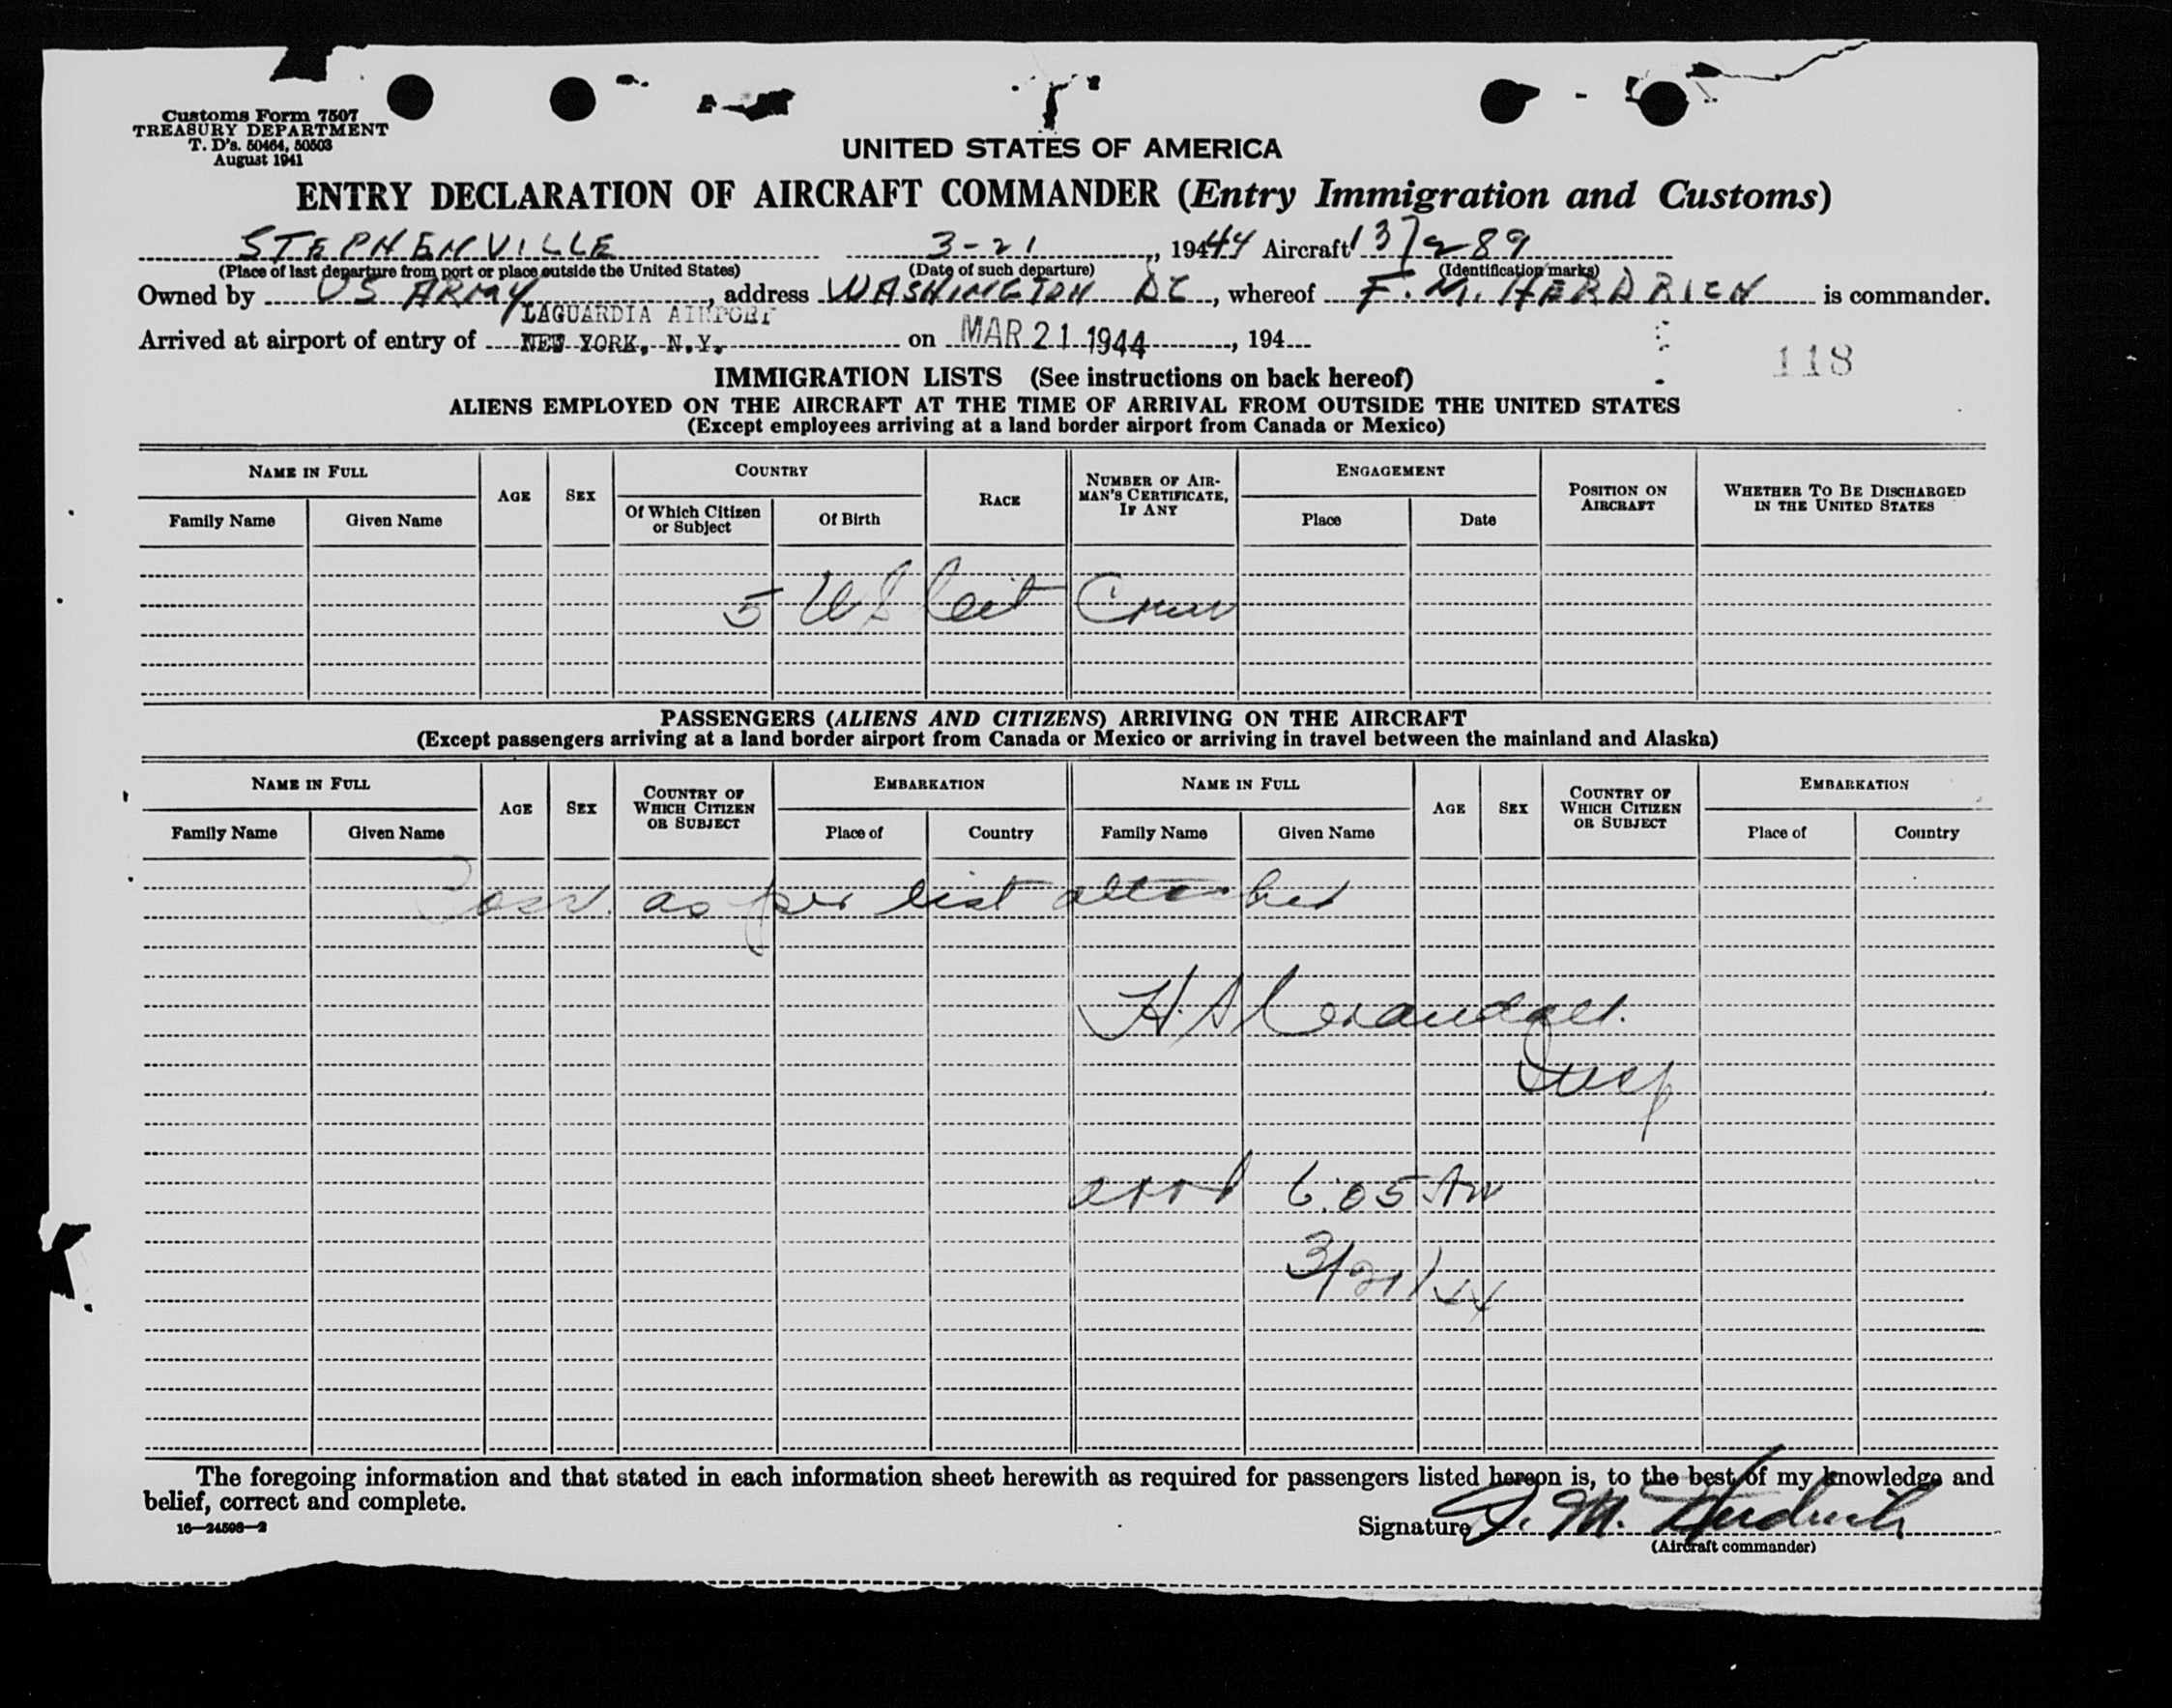 Customs Form 7507
TREASURY DEPARTMENT
T. D's. 50464, 50503
August 1941
UNITED STATES OF AMERICA
ENTRY DECLARATION OF AIRCRAFT COMMANDER (Entry Immigration and Customs)
STEPHENVILLE 3-21, 1944 Aircraft
(Place of last departure from port or place outside the United States) (Date of such departure) (Identification marks)
Owned by US ARMY, address WASHINGTON DC, whereof F. M. is commander.
LAGUARDIA AIRPORT
Arrived at airport of entry of NEW YORK, N.Y. on MAR 21 1944, 194
118
IMMIGRATION LISTS (See instructions on back hereof)
ALIENS EMPLOYED ON THE AIRCRAFT AT THE TIME OF ARRIVAL FROM OUTSIDE THE UNITED STATES
(Except employees arriving at a land border airport from Canada or Mexico)
NAME IN FULL AGE SEX COUNTRY RACE NUMBER OF AIRMAN'S CERTIFICATE, IF ANY ENGAGEMENT POSITION ON AIRCRAFT WHETHER TO BE DISCHARGED IN THE UNITED STATES
Family Name Given Name Of Which Citizen or Subject Of Birth Place Date
5 US Cit Crew
PASSENGERS (ALIENS AND CITIZENS) ARRIVING ON THE AIRCRAFT
(Except passengers arriving at a land border airport from Canada or Mexico or arriving in travel between the mainland and Alaska)
NAME IN FULL AGE SEX COUNTRY OF WHICH CITIZEN OR SUBJECT EMBARKATION NAME IN FULL AGE SEX COUNTRY OF WHICH CITIZEN OR SUBJECT EMBARKATION
Family Name Given Name Place of Country Family Name Given Name Place of Country
Pass. as per list attached
Insp
arrd 6:05 AM
3/21/44
The foregoing information and that stated in each information sheet herewith as required for passengers listed hereon is, to the best of my knowledge and
belief, correct and complete.
16—24598—2
Signature F. M.
(Aircraft commander)